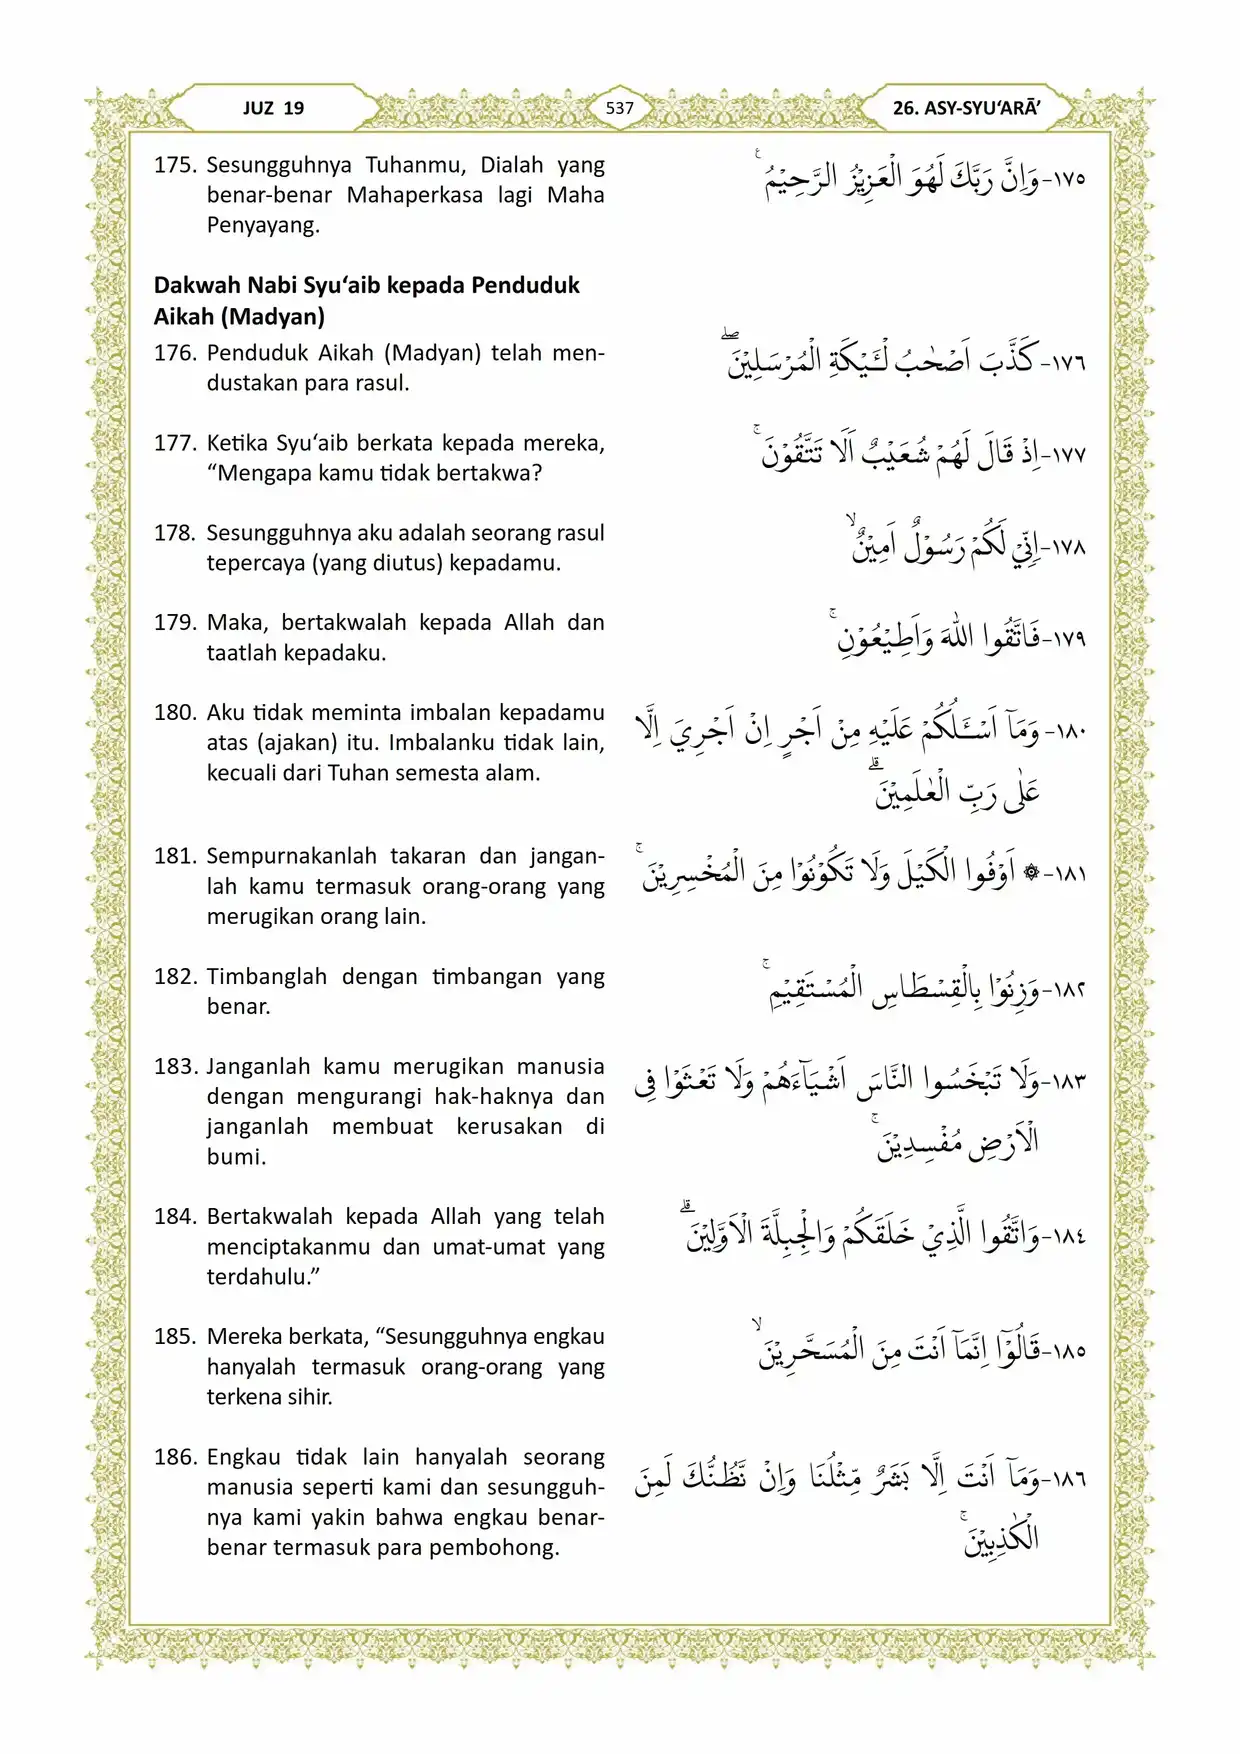 JUZ 19
537
26. ASY-SYU‘ARĀ’
175. Sesungguhnya Tuhanmu, Dialah yang
benar-benar Mahaperkasa lagi Maha
Penyayang.
١٧٥-وَاِنَّ رَبَّكَ لَهُوَ الْعَزِيْزُ الرَّحِيْمُ ࣖ
Dakwah Nabi Syu‘aib kepada Penduduk
Aikah (Madyan)
176. Penduduk Aikah (Madyan) telah men-
dustakan para rasul.
١٧٦-كَذَّبَ اَصْحٰبُ لْـَٔيْكَةِ الْمُرْسَلِيْنَ ۖ
177. Ketika Syu‘aib berkata kepada mereka,
“Mengapa kamu tidak bertakwa?
١٧٧-اِذْ قَالَ لَهُمْ شُعَيْبٌ اَلَا تَتَّقُوْنَ ۚ
178. Sesungguhnya aku adalah seorang rasul
tepercaya (yang diutus) kepadamu.
١٧٨-اِنِّيْ لَكُمْ رَسُوْلٌ اَمِيْنٌ ۙ
179. Maka, bertakwalah kepada Allah dan
taatlah kepadaku.
١٧٩-فَاتَّقُوا اللّٰهَ وَاَطِيْعُوْنِ ۚ
180. Aku tidak meminta imbalan kepadamu
atas (ajakan) itu. Imbalanku tidak lain,
kecuali dari Tuhan semesta alam.
١٨٠-وَمَآ اَسْـَٔلُكُمْ عَلَيْهِ مِنْ اَجْرٍ اِنْ اَجْرِيَ اِلَّا
عَلٰى رَبِّ الْعٰلَمِيْنَ ۗ
181. Sempurnakanlah takaran dan jangan-
lah kamu termasuk orang-orang yang
merugikan orang lain.
١٨١-۞ اَوْفُوا الْكَيْلَ وَلَا تَكُوْنُوْا مِنَ الْمُخْسِرِيْنَ ۚ
182. Timbanglah dengan timbangan yang
benar.
١٨٢-وَزِنُوْا بِالْقِسْطَاسِ الْمُسْتَقِيْمِ ۚ
183. Janganlah kamu merugikan manusia
dengan mengurangi hak-haknya dan
janganlah membuat kerusakan di
bumi.
١٨٣-وَلَا تَبْخَسُوا النَّاسَ اَشْيَاۤءَهُمْ وَلَا تَعْثَوْا فِى
الْاَرْضِ مُفْسِدِيْنَ ۚ
184. Bertakwalah kepada Allah yang telah
menciptakanmu dan umat-umat yang
terdahulu.”
١٨٤-وَاتَّقُوا الَّذِيْ خَلَقَكُمْ وَالْجِبِلَّةَ الْاَوَّلِيْنَ ۗ
185. Mereka berkata, “Sesungguhnya engkau
hanyalah termasuk orang-orang yang
terkena sihir.
١٨٥-قَالُوْٓا اِنَّمَآ اَنْتَ مِنَ الْمُسَحَّرِيْنَ ۙ
186. Engkau tidak lain hanyalah seorang
manusia seperti kami dan sesungguh-
nya kami yakin bahwa engkau benar-
benar termasuk para pembohong.
١٨٦-وَمَآ اَنْتَ اِلَّا بَشَرٌ مِّثْلُنَا وَاِنْ نَّظُنُّكَ لَمِنَ
الْكٰذِبِيْنَ ۚ